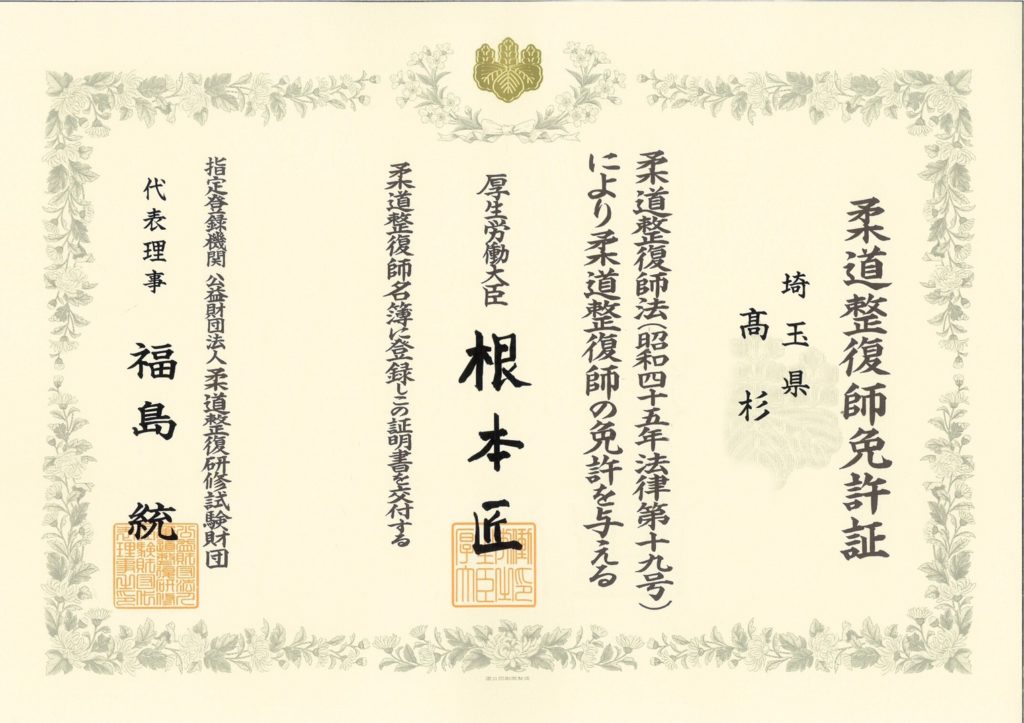 柔道整復師免許証
埼玉県
髙杉
柔道整復師法(昭和四十五年法律第十九号)
により柔道整復師の免許を与える
厚生労働大臣 根本匠
柔道整復師名簿に登録しこの証明書を交付する
指定登録機関 公益財団法人柔道整復研修試験財団
代表理事 福島 統